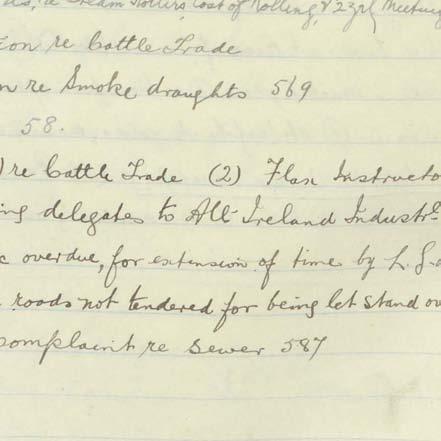 Steam Rollers, Cost of Rolling, & 23rd Meeting
ion re Cattle Trade
n re Smoke draughts 569
58.
) re Cattle Trade (2) Flax Instructo
ing delegates to All-Ireland Industrl
c overdue, for extension of time by L.G.
roads not tendered for being let stand ov
complaint re sewer 587